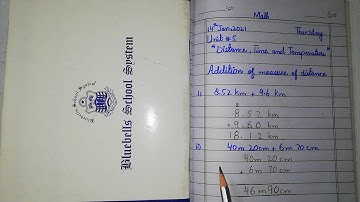 Bluebells School System
Math
14th Jan. 2021 Thursday
Unit # 5
"Distance, Time and Temperature"
Addition of measure of distance
i) 8.52 km + 9.6 km
8.52 km
+ 9.60 km
18.12 km
ii) 40m 20cm + 6m 70cm
40m 20cm
+ 6m 70cm
46m 90cm